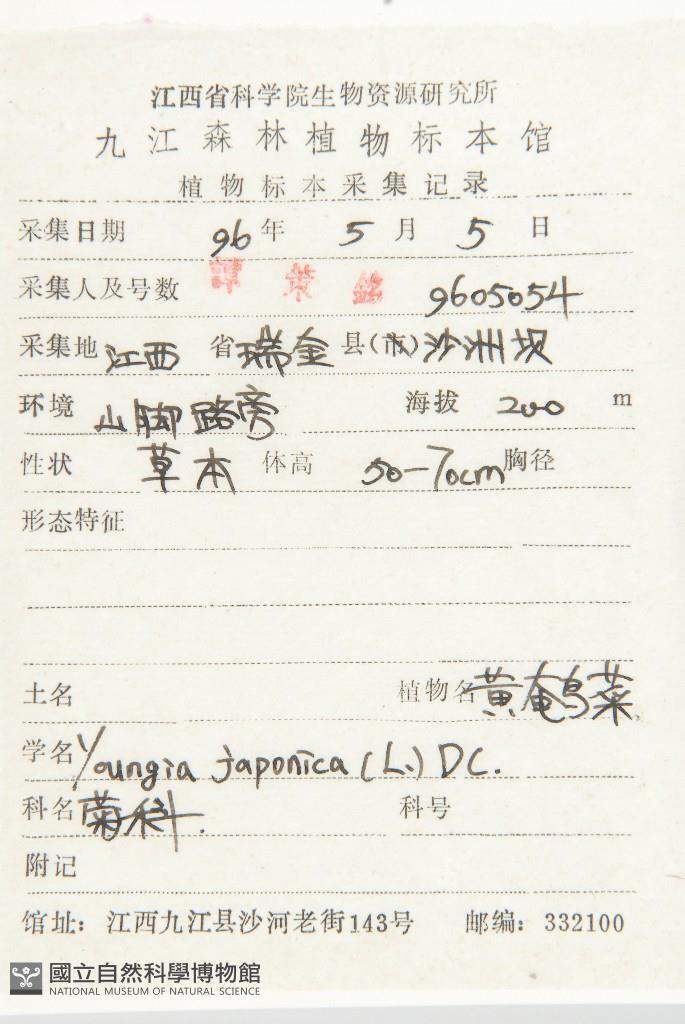 江西省科学院生物资源研究所
九江森林植物标本馆
植物标本采集记录
采集日期 96 年 5 月 5 日
采集人及号数 9605054
采集地 江西 省 瑞金 县(市) 沙洲坝
环境 山脚路旁 海拔 200 m
性状 草本 体高 50-70cm 胸径
形态特征
土名 植物名 黄鹌菜
学名 Youngia japonica (L.) DC.
科名 菊科. 科号
附记
馆址: 江西九江县沙河老街143号 邮编: 332100
國立自然科學博物館
NATIONAL MUSEUM OF NATURAL SCIENCE